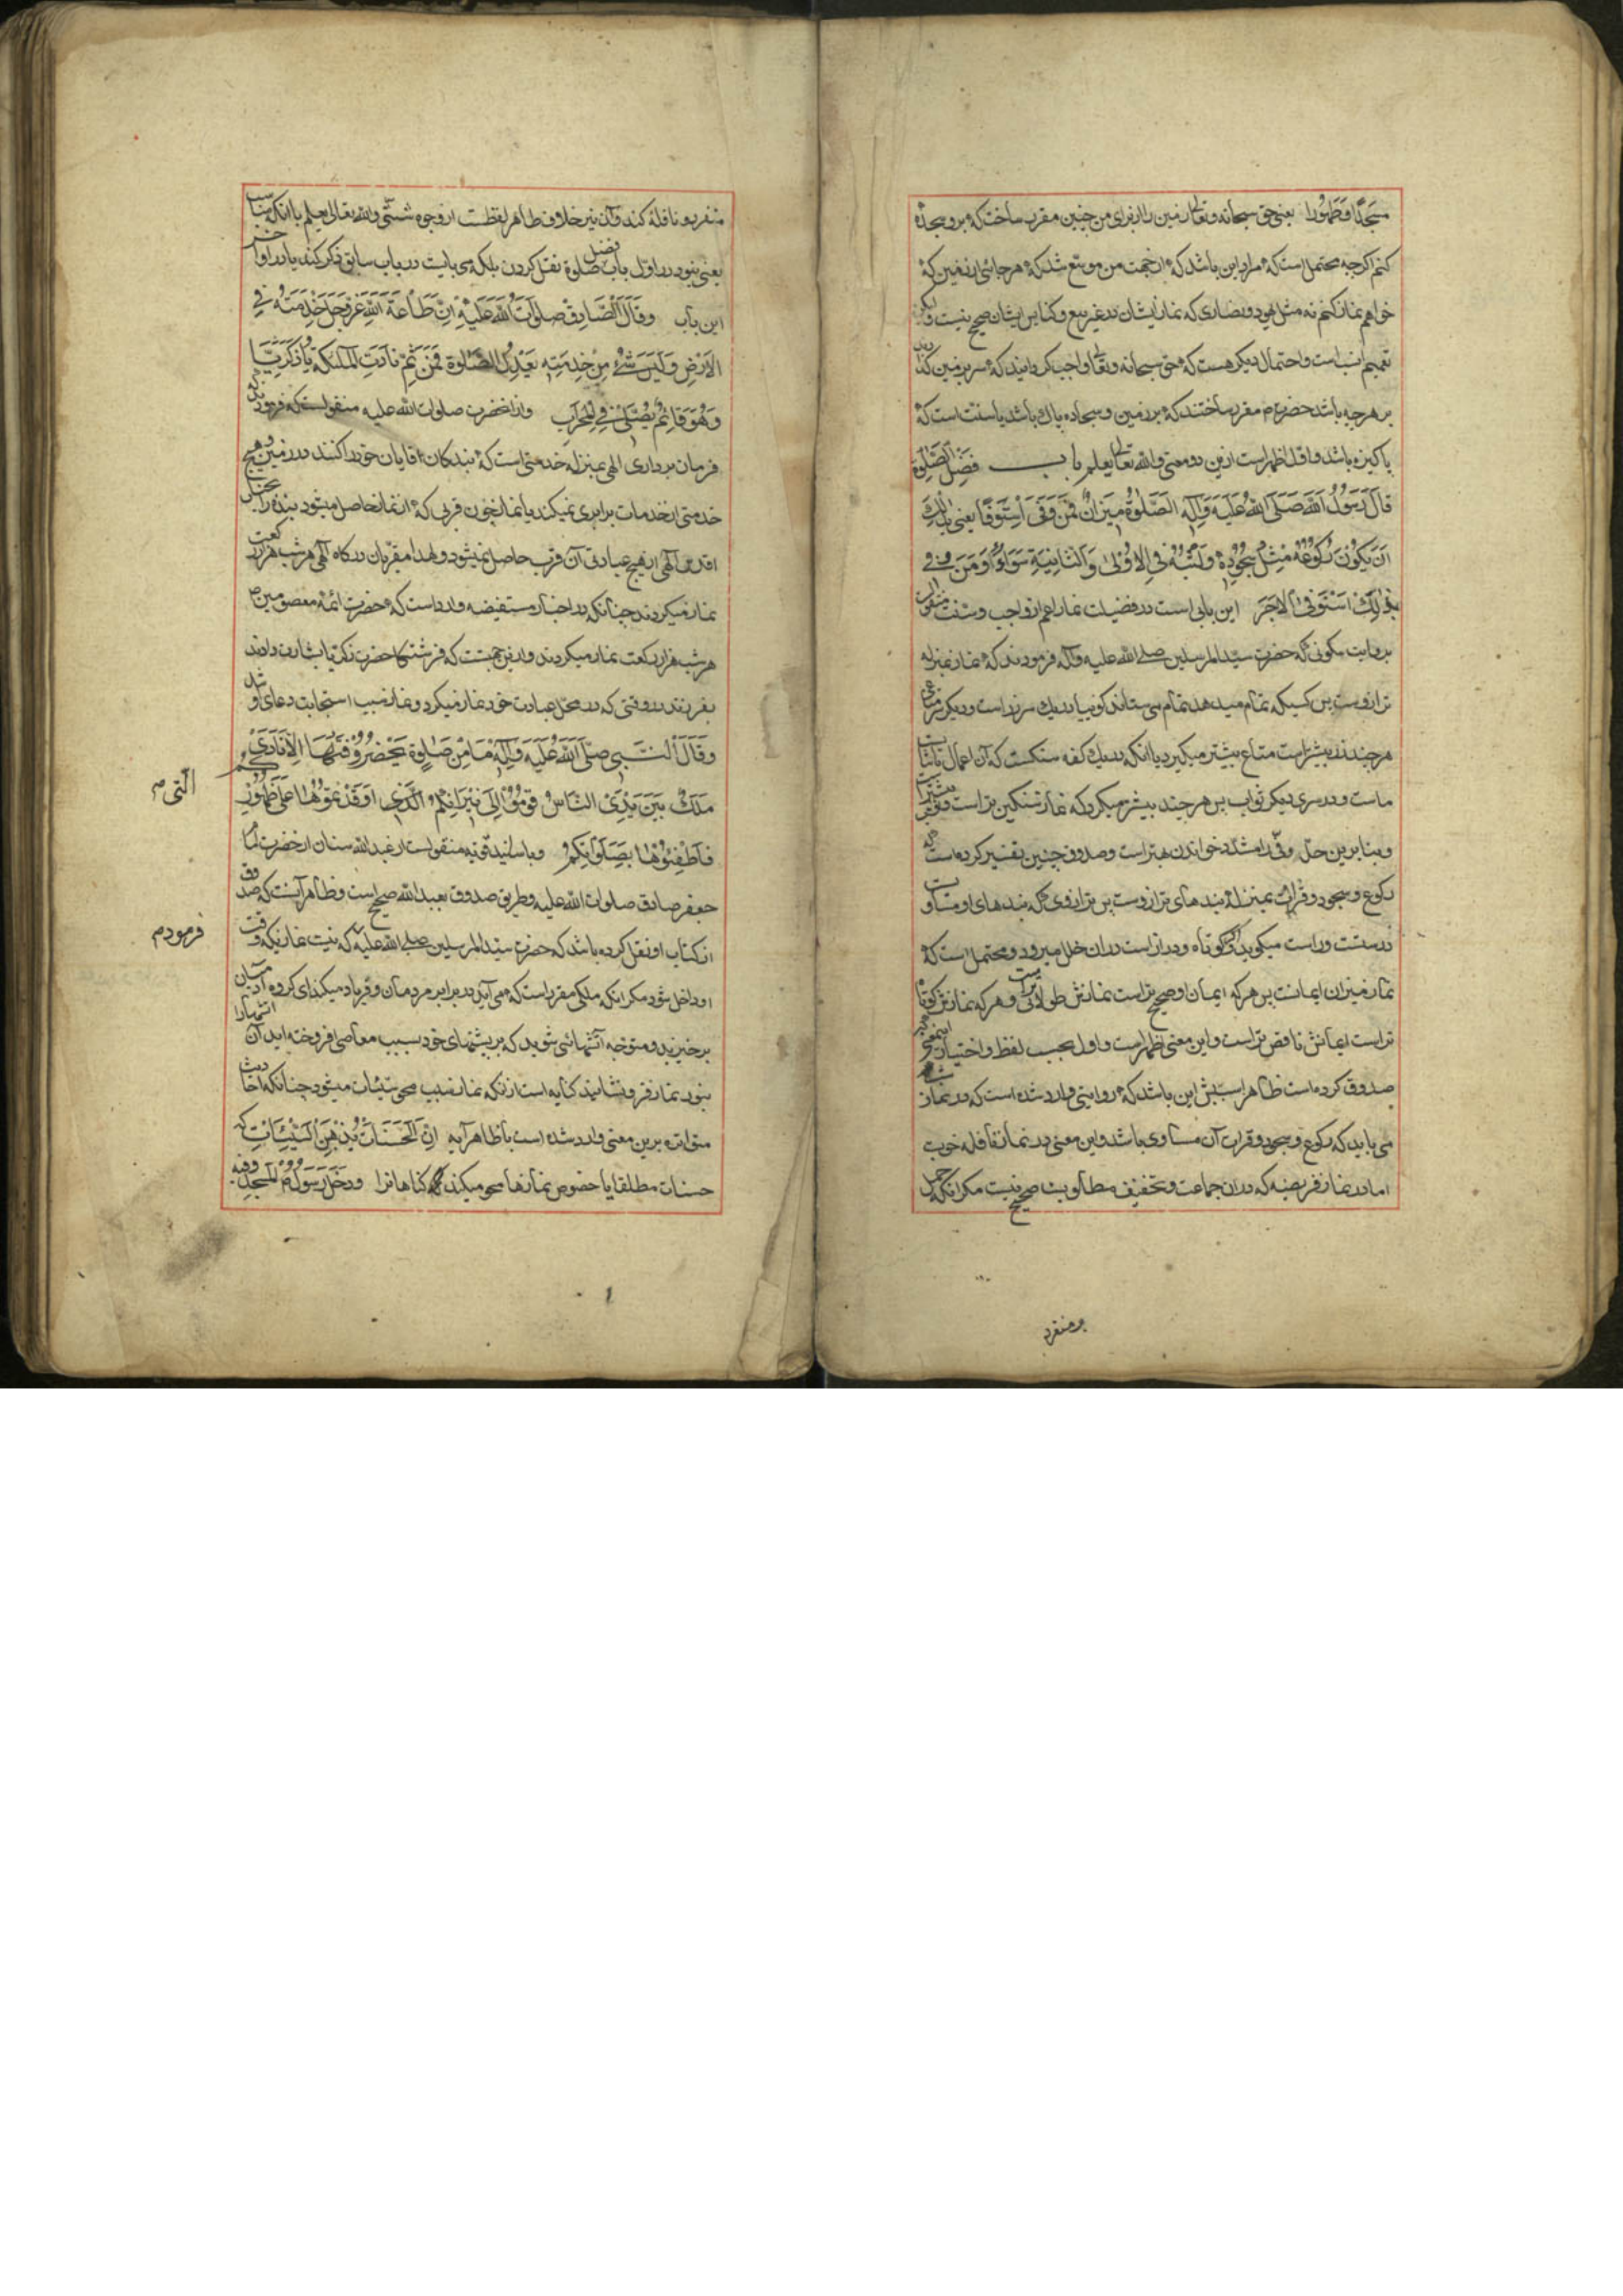 مسجدا و طهورا یعنی حق سبحانه و تعالی زمین را از برای من چنین مقرر ساخت که برو سجده
کنم اگرچه محتمل است که مراد این باشد که از جهت من موسع شد که هر جائی از زمین که
خواهم نماز کنم نه مثل یهود و نصاری که نماز ایشان در غیر بیع و کنایس ایشان صحیح نیست و لیکن
تعمیم انسب است و احتمال دیگر هست که حق سبحانه و تعالی واجب گردانید که سر بر زمین گذارند
بر هر چه باشد حضرت م مقرر ساختند که بر زمین و سجاده پاك باشد یا سنت است که
پاکیزه باشد و اول اظهر است ازین دو معنی والله تعالی یعلم باب فضل الصلوة
قال رسول الله صلی الله علیه و آله الصلوة میزان فمن وفی استوفی یعنی بذلك
ان یکون رکوعه مثل سجوده و لبثه فی الاولی و الثانیة سواء و من وفی
بذلك استوفی الاجر این بابی است در فضیلت نماز اعم از واجب و سنت منقول
بروایت سکونی که حضرت سید المرسلین صلی الله علیه و آله فرمودند که نماز بمنزله
ترازوست پس کسیکه تمام میدهد تمام می ستاند گوییا در یك سر زر است و دیگر سر متاع
هرچند زر بیشتر است متاع بیشتر میگیرد یا انکه در یك کفه سنگست که آن اعمال
ماست و در سری دیگر ثواب پس هرچند بیشتر میگردد که نماز سنگین تر است ثواب بیشتر است
و بنا برین حل وفی را مشدد خواندن بهتر است و صدوق چنین تفسیر کرده است که
رکوع و سجود و قرائت بمنزله بندهای ترازوست پس ترازوی که بندهای او مساوی است
درست و راست میگوید و اگر کوتاه و دراز است در ان خلل میرود و محتمل است که
نماز میزان ایمانست پس هرکه ایمان او صحیح تر است نمازش طولانی تر است و هرکه نمازش کوتاه
تر است ایمانش ناقص تر است و این معنی اظهر است و اول بحسب لفظ و اختیار این معنی که
صدوق کرده است ظاهرا سببش این باشد که روایتی وارد شده است که در نماز شب
می باید که رکوع و سجود و قرات آن مساوی باشد و این معنی در نماز نافله خوب
اما در نماز فریضه که در ان جماعت و تخفیف مطلوبست صحیح نیست مگر انکه حمل
بر منفرد
منفرد و نافله کند و آن نیز خلاف ظاهر لفظست از وجوه شتی والله تعالی یعلم با انکه مناسب
یعنی نبود در اول باب فضل صلوة نقل کردن بلکه می بایست در باب سابق ذکر کند یا در اواخر
این باب و قال الصادق صلوات الله علیه ان طاعة الله عز و جل خدمته فی
الارض و لیس شئ من خدمته یعدل الصلوة فمن ثم نادت الملئکة یا زکریا
و هو قائم یصلی فی المحراب و از انحضرت صلوات الله علیه منقولست که فرمودند که
فرمان برداری الهی بمنزله خدمتی است که بندکان اقایان خود را کنند در زمین و هیچ
خدمتی از خدمات برابری نمیکند با نماز چون قربی که از نماز حاصل میشود بنده را بجناب
اقدس الهی از هیچ عبادتی آن قرب حاصل نمیشود و لهذا مقربان درکاه الهی هر شب هزار رکعت
نماز میکردند چنانکه در اخبار مستفیضه وارد است که حضرت ائمه معصومین ص
هر شب هزار رکعت نماز میکردند و ازین جهتست که فرشتکان حضرت زکریا را بشارت دادند
بفرزند در وقتی که در محل عبادت خود نماز میکرد و نماز سبب استجابت دعای او شد
و قال النبی صلی الله علیه و آله ما من صلوة یحضر وقتها الا نادی
ملك بین یدی الناس قوموا الی نیرانکم الذی اوقدتموها علی ظهورکم
التی م
فاطفئوها بصلوتکم و باسانید قویه منقولست از عبدالله سنان از حضرت امام
جعفر صادق صلوات الله علیه و طریق صدوق بعبدالله صحیح است و ظاهر آنست که صدوق
از کتاب او نقل کرده باشد که حضرت سید المرسلین صلی الله علیه که نیست نمازیکه وقت
فرمود م
او داخل شود مکر انکه ملکی مقرر است که می آید در برابر مردمان و فریاد میکند ای کروه آدمیان
برخیزید و متوجه آتشهائی شوید که بر پشتهای خود بسبب معاصی افروخته اید آن آتشها را
بنور نماز فرو نشانید کنایه است از انکه نماز سبب محو سیئات میشود چنانکه احادیث
متواتره برین معنی وارد شده است با ظاهر آیه ان الحسنات یذهبن السیئات که
حسنات مطلقا یا خصوص نمازها محو میکند کناهانرا و دخل رسول الله المسجد و فیه